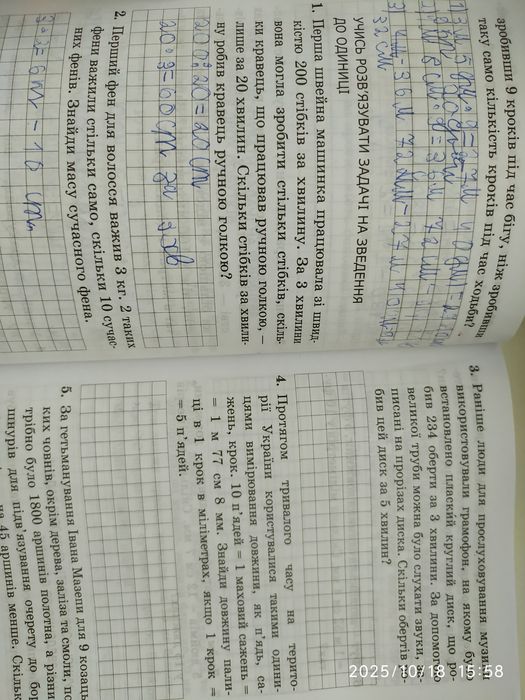 зробивши 9 кроків під час бігу, ніж зробивши
таку само кількість кроків під час ходьби?
32 см
УЧИСЬ РОЗВ'ЯЗУВАТИ ЗАДАЧІ НА ЗВЕДЕННЯ
ДО ОДИНИЦІ
1. Перша швейна машинка працювала зі швид-
кістю 200 стібків за хвилину. За 3 хвилини
вона могла зробити стільки стібків, скіль-
ки кравець, що працював ручною голкою, —
лише за 20 хвилин. Скільки стібків за хвили-
ну робив кравець ручною голкою?
200:20=20 ст
20·3=60 ст за 3 хв
2. Перший фен для волосся важив 3 кг. 2 таких
фени важили стільки само, скільки 10 сучас-
них фенів. Знайди масу сучасного фена.
3. Раніше люди для прослуховування музики
використовували грамофон, на якому було
встановлено плаский круглий диск, що ро-
бив 234 оберти за 3 хвилини. За допомогою
великої труби можна було слухати звуки,
писані на прорізах диска. Скільки обертів
бив цей диск за 5 хвилин?
4. Протягом тривалого часу на терито-
рії України користувалися такими одини-
цями вимірювання довжини, як п'ядь, са-
жень, крок. 10 п'ядей = 1 маховий сажень =
= 1 м 77 см 8 мм. Знайди довжину пали-
ці в 1 крок в міліметрах, якщо 1 крок =
= 5 п'ядей.
5. За гетьманування Івана Мазепи для 9 козаць-
ких човнів, окрім дерева, заліза та смоли, по-
трібно було 1800 аршинів полотна, а різних
шнурів для підв'язування очерету до бор-
на 45 аршинів менше. Скільк
2025/10/18 15:58